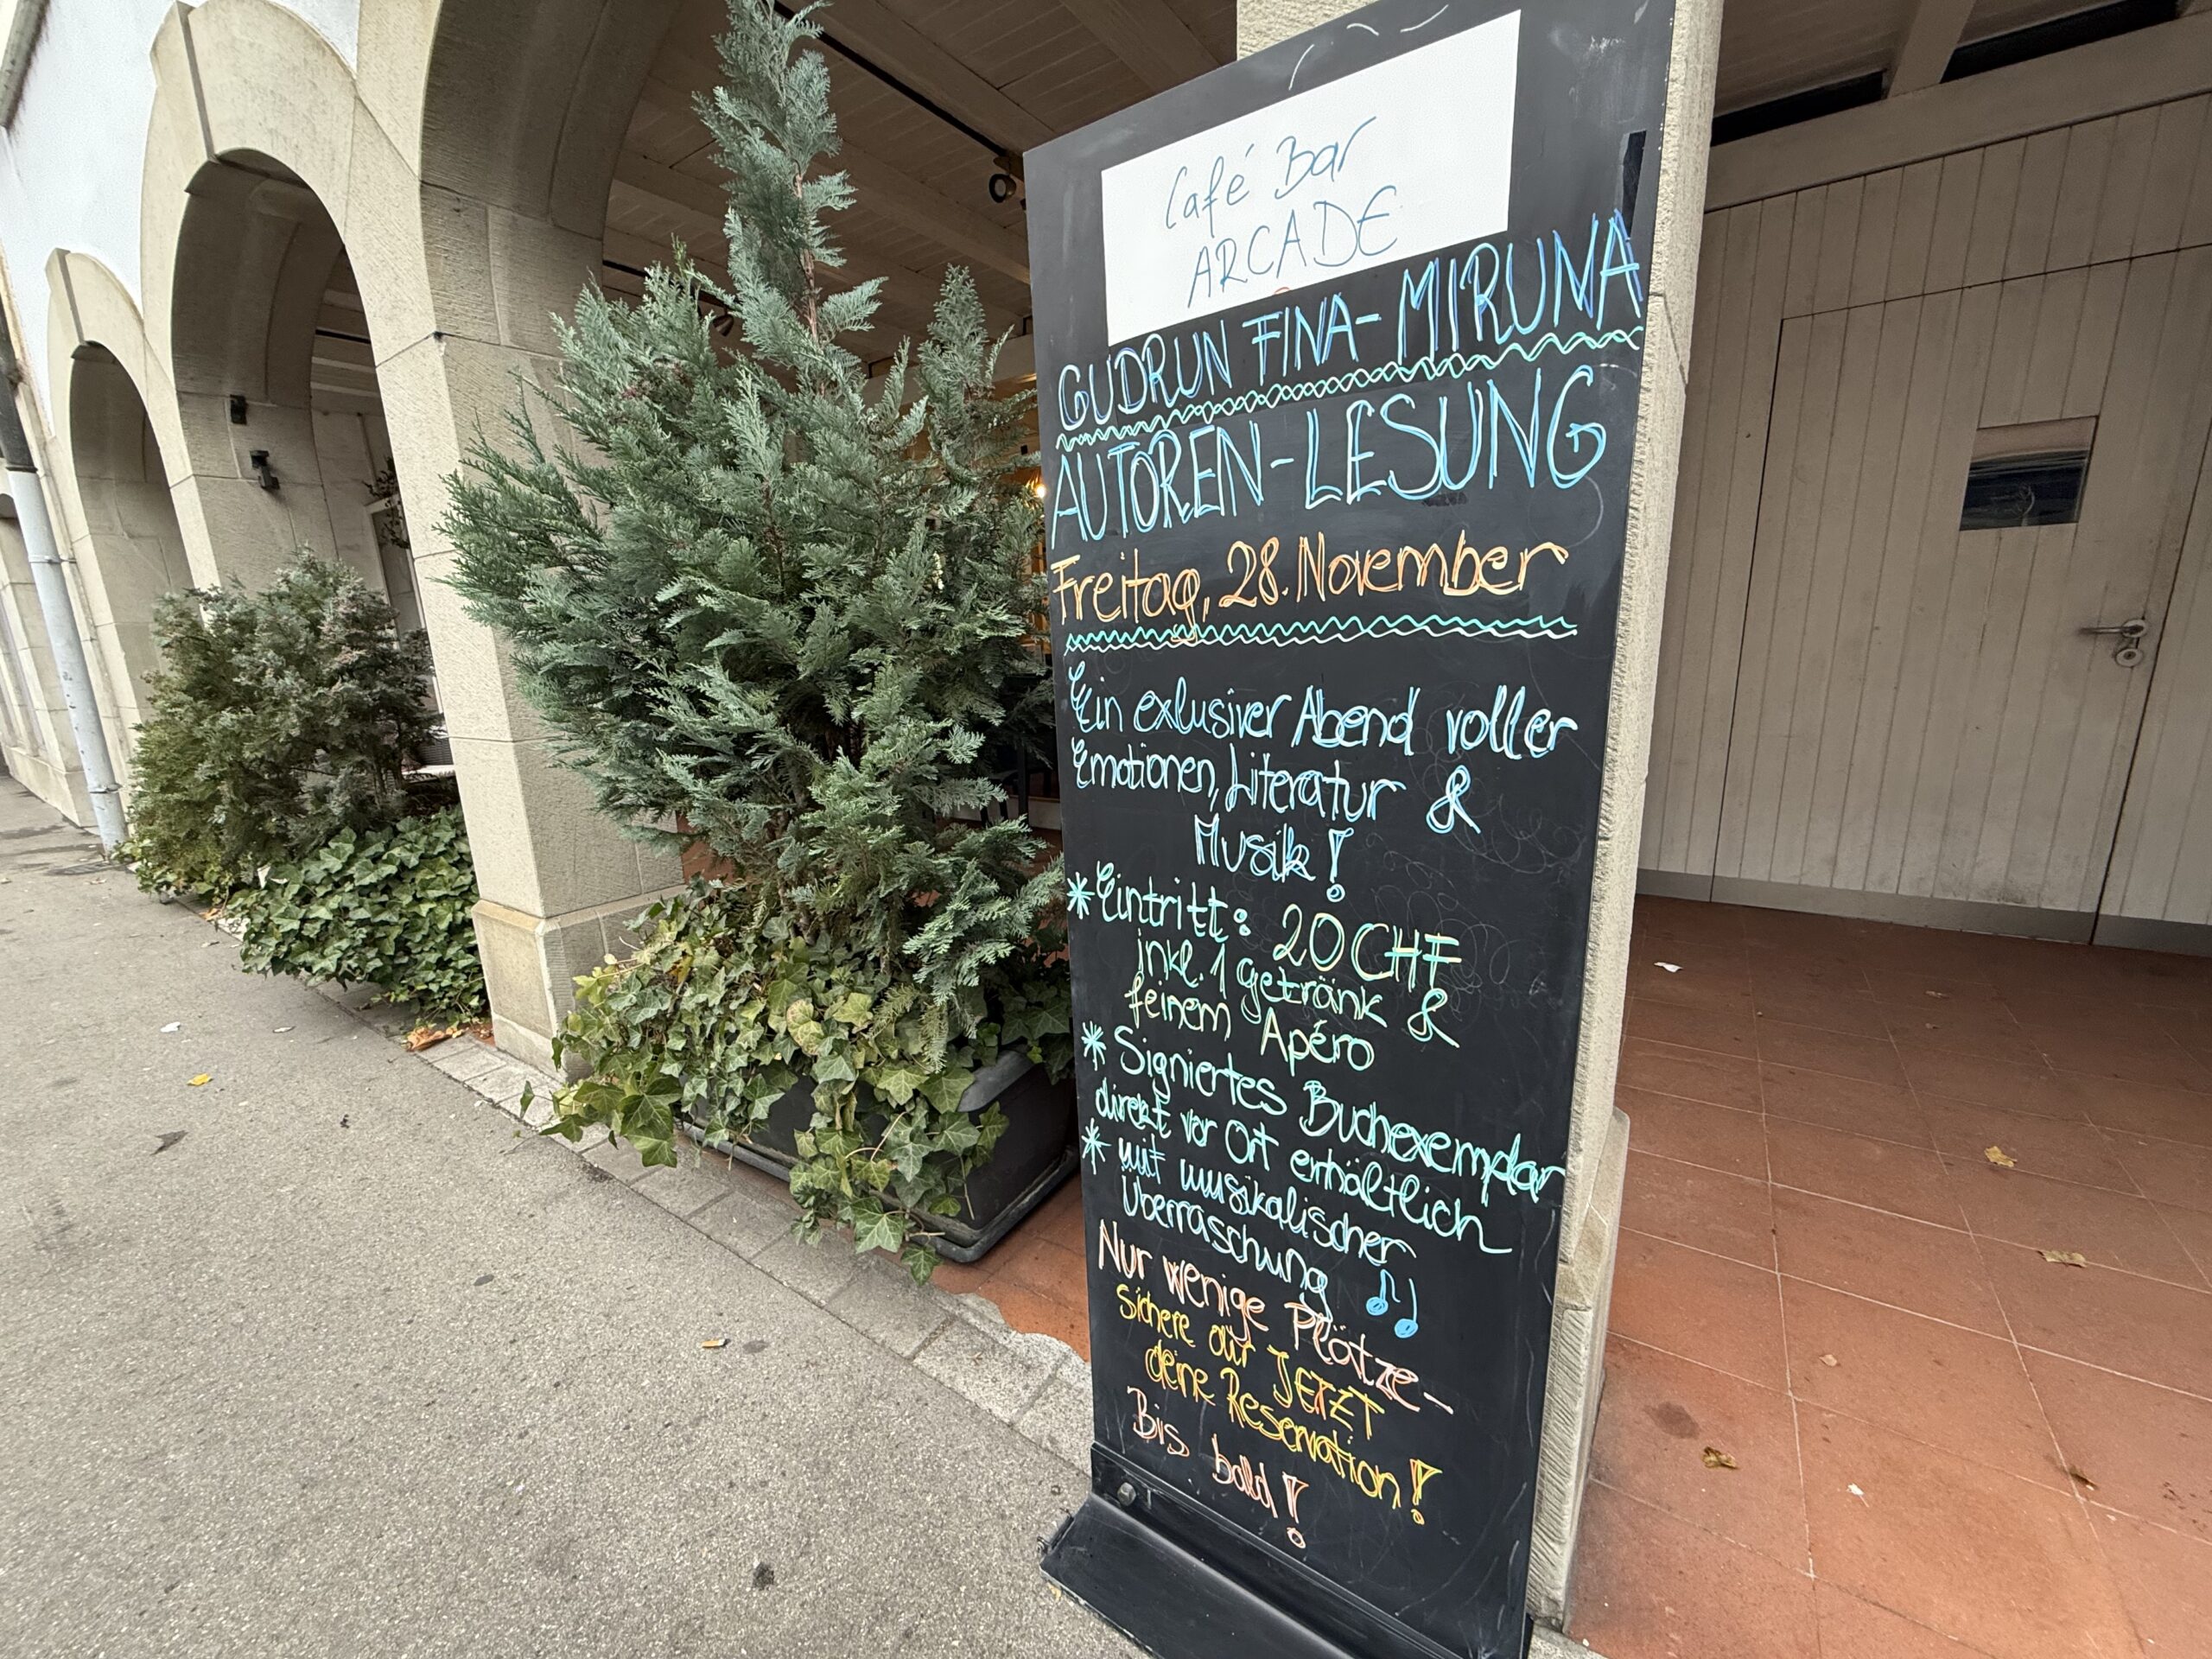 Café Bar
ARCADE
GUDRUN FINA-MIRUNA
AUTOREN-LESUNG
Freitag, 28. November
Ein exlusiver Abend voller
Emotionen, Literatur &
Musik!
* Eintritt: 20 CHF
inkl. 1 getränk &
feinem Apéro
* Signiertes Buchexemplar
direkt vor Ort erhältlich
* mit musikalischer
Überraschung
Nur wenige Plätze-
Sichere dir JETZT
deine Reservation!
Bis bald!